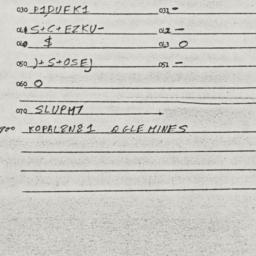 030 P1DUFK1 031 -
041 S+C+EZKU- 042 -
040 $ 043 0
050 J+S+OSEJ 051 -
060 0
070 SLUPM7
KOPALZN81 QGLEMINES